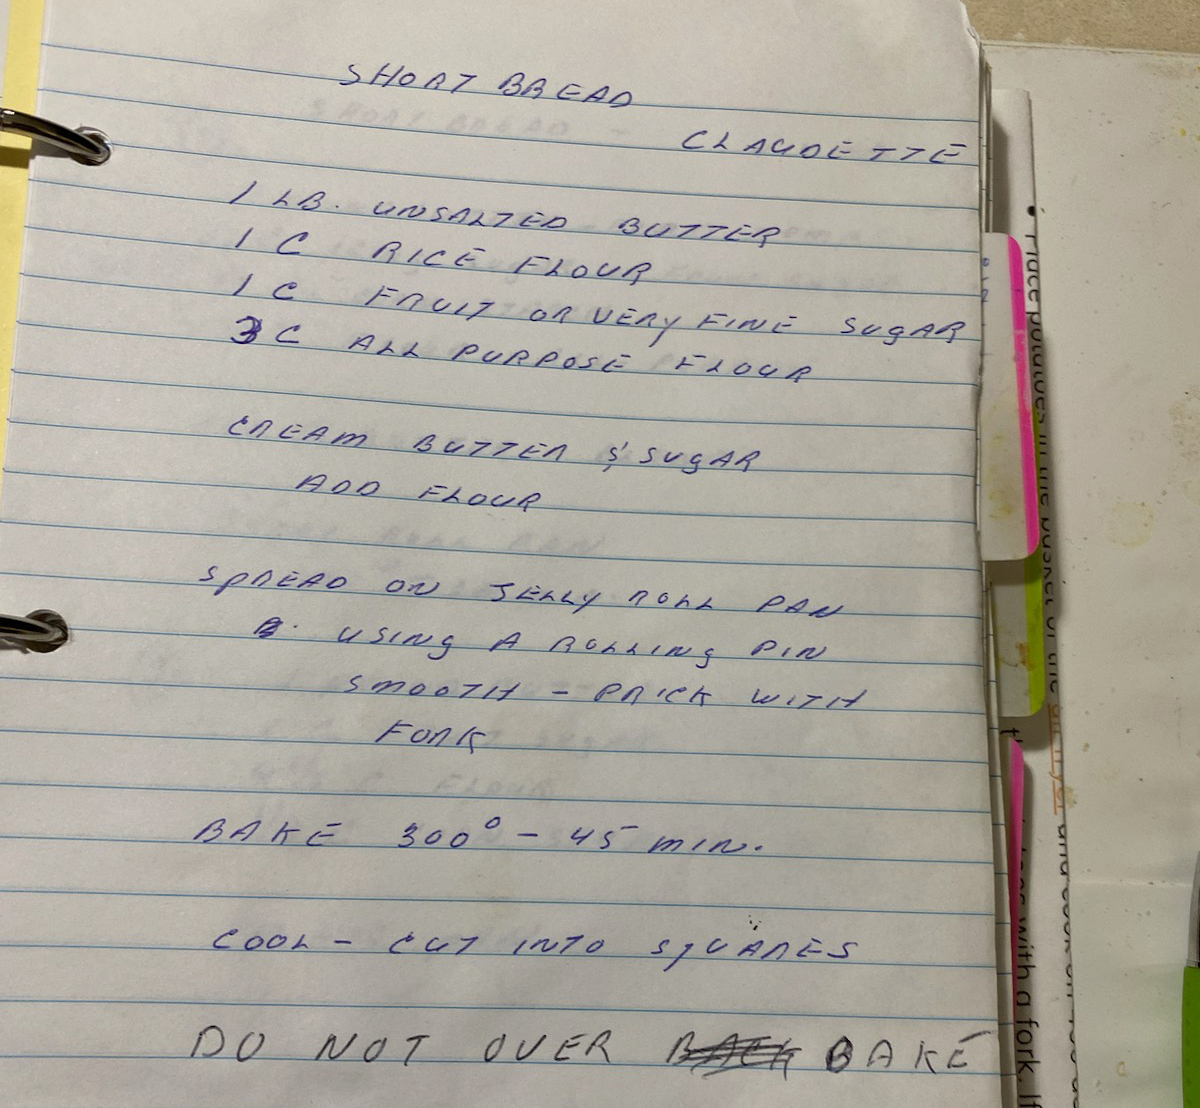 SHORT BREAD
CLAUDETTE
1 LB. UNSALTED BUTTER
1 C RICE FLOUR
1 C FRUIT OR VERY FINE SUGAR
3 C ALL PURPOSE FLOUR
CREAM BUTTER & SUGAR
ADD FLOUR
SPREAD ON JELLY ROLL PAN
USING A ROLLING PIN
SMOOTH - PRICK WITH
FORK
BAKE 300° - 45 MIN.
COOL - CUT INTO SQUARES
DO NOT OVER BAKE
• Place potatoes in the basket of the
with a fork. If